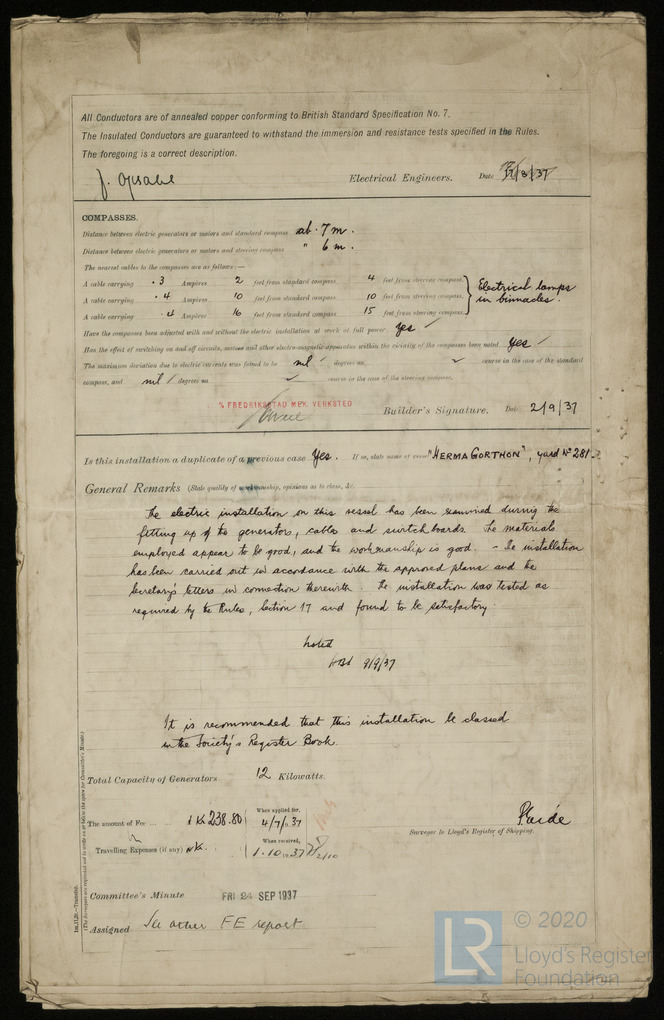 All Conductors are of annealed copper conforming to British Standard Specification No. 7.
The Insulated Conductors are guaranteed to withstand the immersion and resistance tests specified in the Rules.
The foregoing is a correct description.
Electrical Engineers. Date /8/37
COMPASSES.
Distance between electric generators or motors and standard compass ab. 7 m.
Distance between electric generators or motors and steering compass " 6 m.
The nearest cables to the compasses are as follows:—
A cable carrying .3 Ampères 2 feet from standard compass 4 feet from steering compass.
A cable carrying .4 Ampères 10 feet from standard compass 10 feet from steering compass.
A cable carrying .4 Ampères 16 feet from standard compass 15 feet from steering compass.
Electrical lamps
in binnacles.
Have the compasses been adjusted with and without the electric installation at work at full power yes ✓
Has the effect of switching on and off circuits, motors and other electro-magnetic apparatus within the vicinity of the compasses been noted yes ✓
The maximum deviation due to electric currents was found to be nil degrees on ✓ course in the case of the standard
compass, and nil degrees on ✓ course in the case of the steering compass.
FREDRIKSSTAD MEK. VERKSTED
Builder's Signature. Date 2/9/37
Is this installation a duplicate of a previous case Yes. If so, state name of vessel "HERMA GORTHON", yard No 281
General Remarks (State quality of workmanship, opinions as to class, &c.
The electric installation on this vessel has been examined during the
fitting up of the generators, cables and switchboards. The materials
employed appear to be good, and the workmanship is good. – The installation
has been carried out in accordance with the approved plans and the
Secretary's letters in connection therewith. The installation was tested as
required by the Rules, Section 17 and found to be satisfactory.
Noted
9/9/37
It is recommended that this installation be classed
in the Society's Register Book.
Total Capacity of Generators 12 Kilowatts.
The amount of Fee ... Kr 238.80
When applied for,
4/9/37
Surveyor to Lloyd's Register of Shipping.
Travelling Expenses (if any)
When received,
1.10.1937
2/10
Committee's Minute FRI 24 SEP 1937
Assigned See other F E report
(The Surveyors are requested not to write on or below the space for Committee's Minute.)
© 2020
LR
Lloyd's Register
Foundation